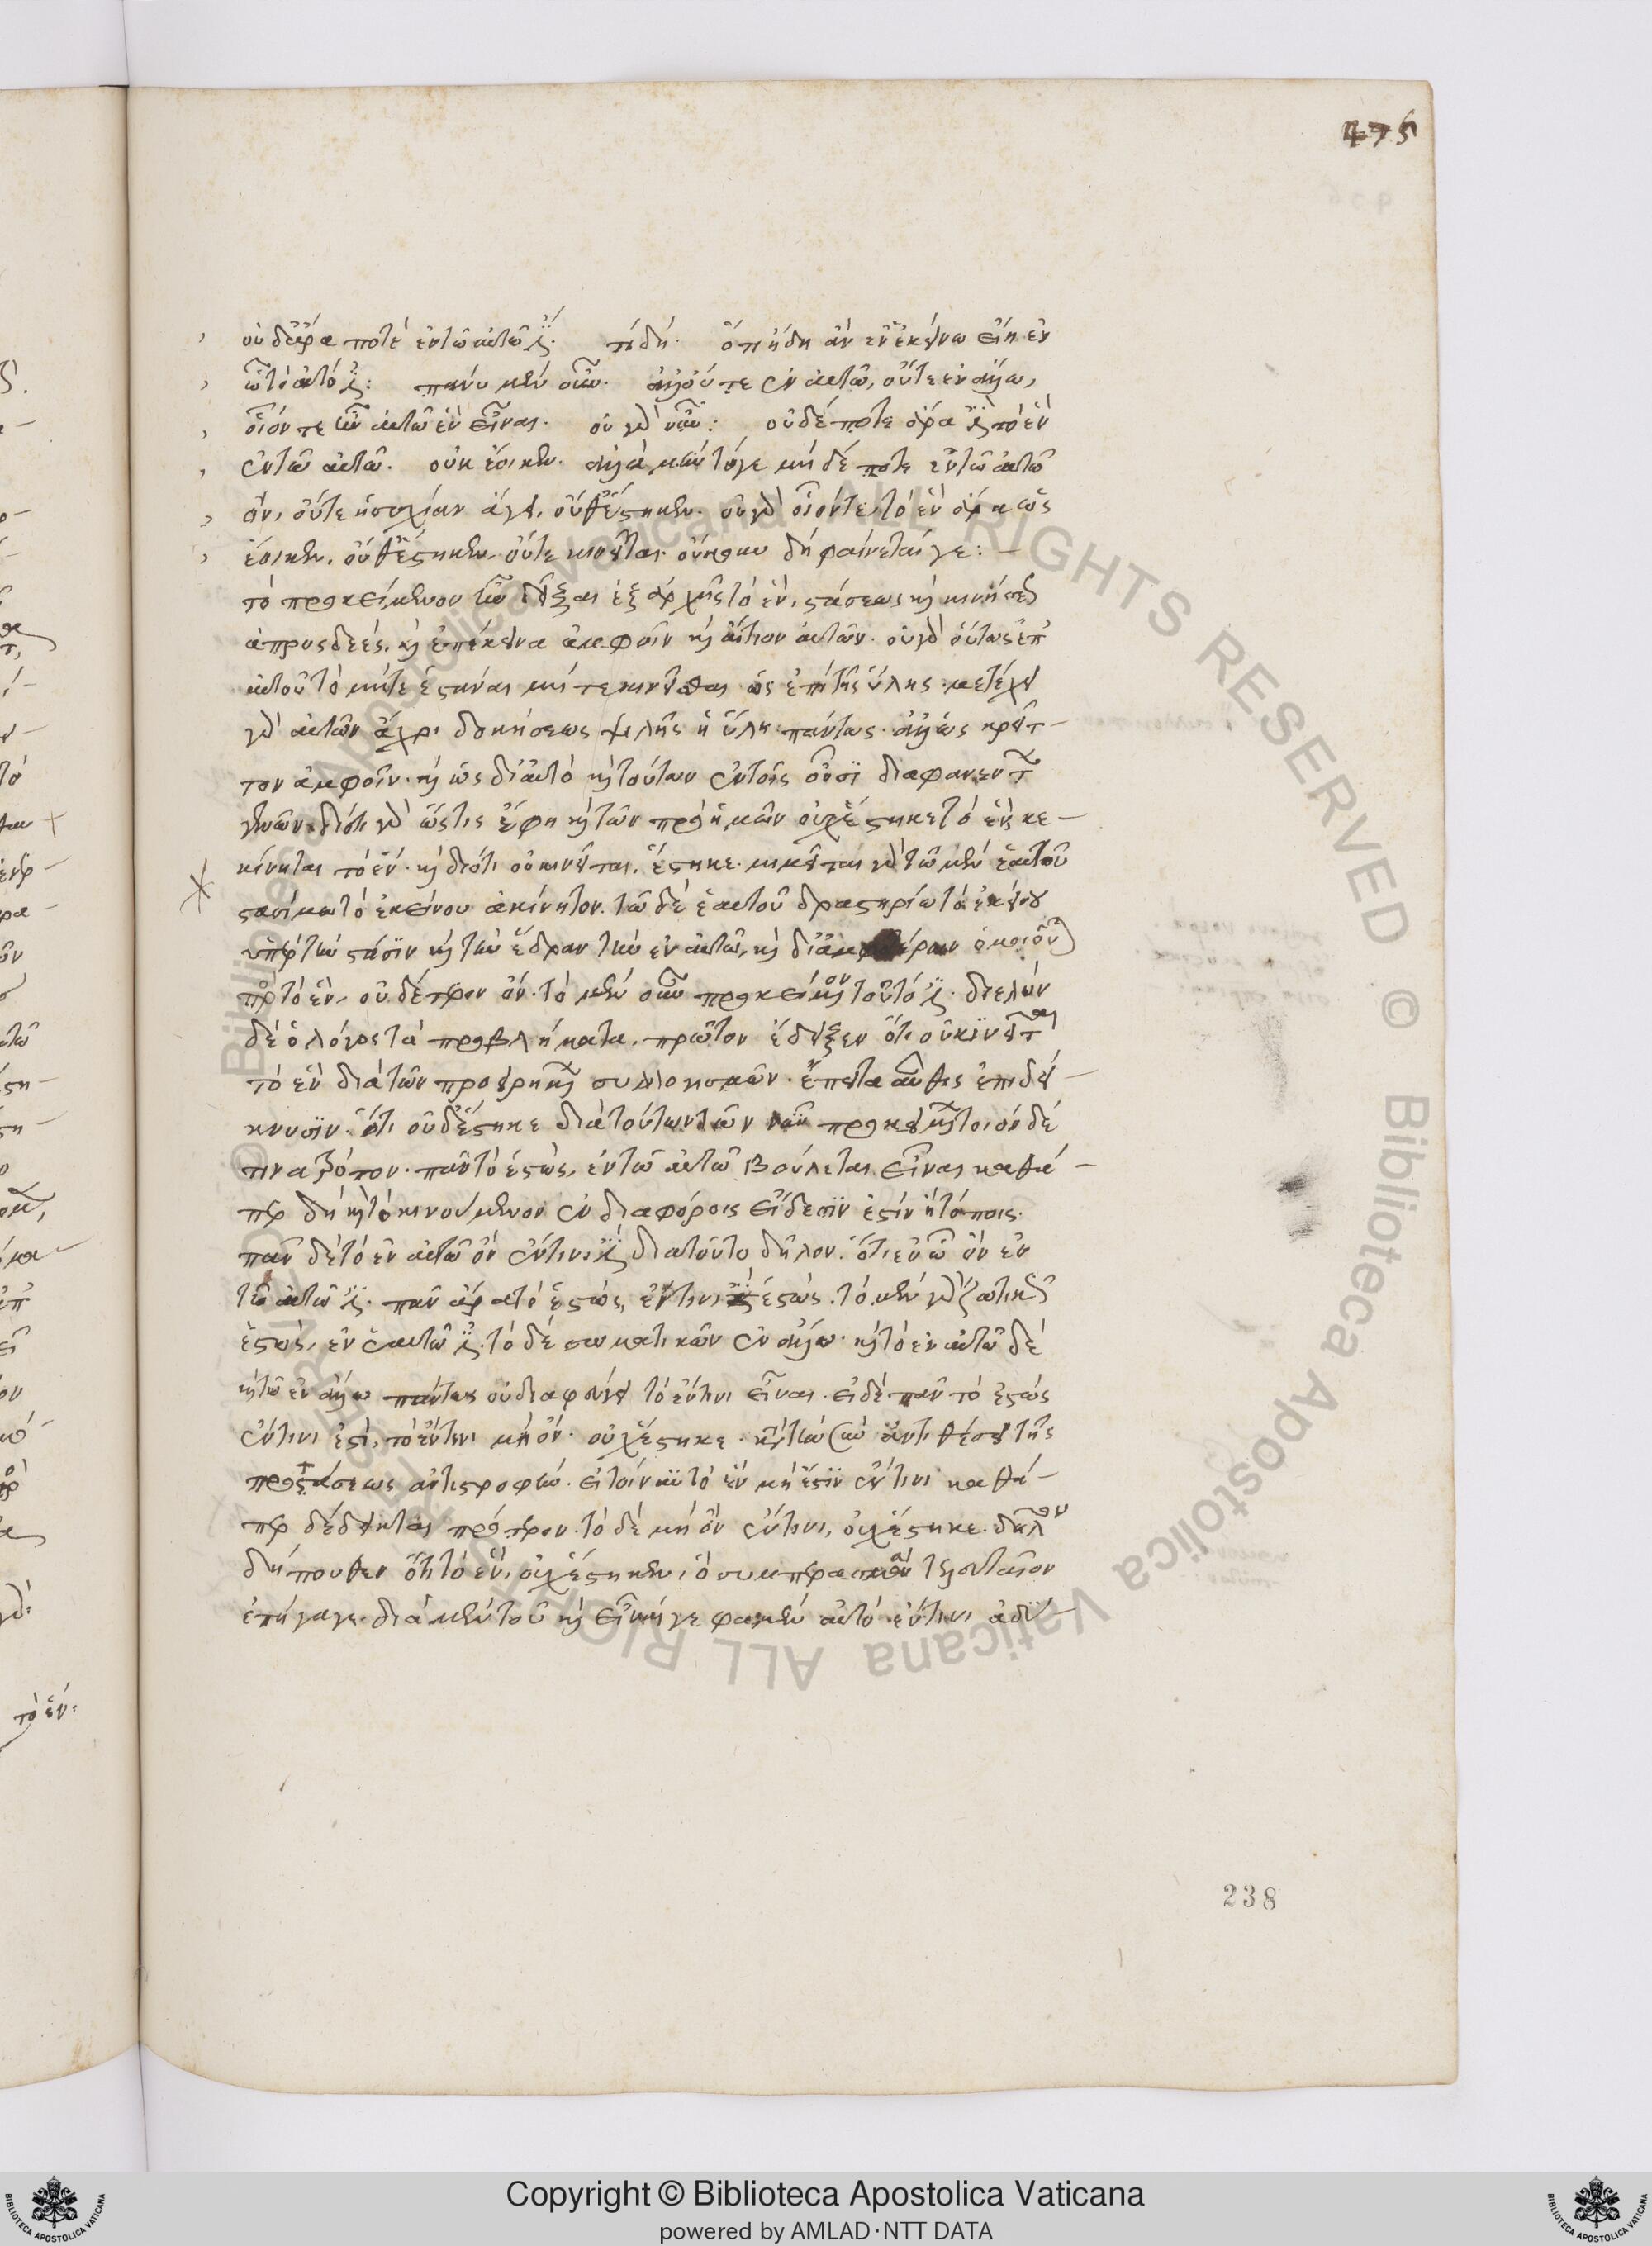 475
οὐδ' ἄρα ποτὲ ἐν τῶ αὐτῶ ἐστι. τί δή. ὅτι ἤδη ἂν ἐν ἐκείνω εἴη ἐν
ὧ τὸ αὐτό ἐστι: πάνυ μὲν οὖν. ἀλλ' οὔτε ἐν αὑτῶ, οὔτε ἐν ἄλλω,
οἷόν τε ἦν αὐτῶ ἓν εἶναι. οὐ γὰρ οὖν: οὐδέποτε ἄρα ἐστὶ τὸ ἓν
ἐν τῶ αὐτῶ. οὐκ ἔοικεν. ἀλλὰ μὴν τόγε μηδέποτε ἐν τῶ αὐτῶ
ὂν, οὔτε ἡσυχίαν ἄγει, οὔθ' ἕστηκεν. οὐ γὰρ οἷόν τε, τὸ ἓν ἄρα ὡς
ἔοικεν, οὔθ' ἕστηκεν, οὔτε κινεῖται. οὔκουν δὴ φαίνεταί γε: –
τὸ προκείμενον ἦν δεῖξαι ἐξ ἀρχῆς τὸ ἓν, στάσεως καὶ κινήσεως
ἀπροσδεές, καὶ ἐπέκεινα ἀμφοῖν καὶ αἴτιον αὐτῶν. οὐ γὰρ οὕτως ἐπ'
αὐτοῦ τὸ μήτε ἑστάναι μήτε κινεῖσθαι ὡς ἐπὶ τῆς ὕλης. μετέχει
γὰρ αὐτῶν ἄχρι δοκήσεως ψιλῆς ἡ ὕλη πάντως. ἀλλ' ὡς κρεῖτ-
τον ἀμφοῖν. καὶ ὡς δι' αὐτὸ καὶ τούτων ἐν τοῖς οὖσι διαφανέντων
γενῶν. διότι γὰρ ὥς τις ἔφη καὶ τῶν πρὸ ἡμῶν οὐχ ἕστηκε τὸ ἓν, κε-
κίνηται τὸ ὄν. καὶ διότι οὐ κινεῖται, ἕστηκε. μιμεῖται γὰρ τῶ μὲν ἑαυτοῦ
στασίμω τὸ ἐκείνου ἀκίνητον. τῶ δὲ ἑαυτοῦ δραστηρίω τὸ ἐκείνου
ὑπὲρ τὴν στάσιν καὶ τὴν ἕδραν τὴν ἐν αὐτῶ, καὶ δι' ἀμφοτέρων ὁμοιοῦται
πρὸς τὸ ἓν, οὐδέτερον ὄν. τὸ μὲν οὖν προκείμενον τοῦτό ἐστι. διελὼν
δὲ ὁ λόγος τὰ προβλήματα, πρῶτον ἔδειξεν ὅτι οὐ κινεῖται
τὸ ἓν διὰ τῶν προειρημένων συλλογισμῶν. ἔπειτα αὖθις ἐπιδεί-
κνυσιν. ὅτι οὐδ' ἕστηκε διὰ τούτων τῶν νῦν προκειμένων τοιόνδέ
τινα τρόπον. πᾶν τὸ ἑστὼς, ἐν τῶ αὐτῶ βούλεται εἶναι καθά-
περ δὴ καὶ τὸ κινούμενον ἐν διαφόροις εἴδεσιν ἐστὶν ἢ τόποις.
πᾶν δὲ τὸ ἐν αὐτῶ ὂν ἔν τινι ἐστὶ διὰ τοῦτο δῆλον. ὅτι ἐν ὧ ὂν ἐν
τῶ αὐτῶ ἐστι. πᾶν ἄρα τὸ ἑστὼς, ἔν τινι ἐστὶν ἑστώς. τὸ μὲν γὰρ ζωτικῶς
ἑστὼς, ἐν ἑαυτῶ ἐστι. τὸ δὲ σωματικῶς ἐν ἄλλω. καὶ τὸ ἐν αὑτῶ δὲ
καὶ τῶ ἐν ἄλλω πάντως οὐ διαφεύγει τὸ ἔν τινι εἶναι. εἰ δὲ πᾶν τὸ ἑστὼς
ἔν τινι ἐστὶ, τὸ ἔν τινι μὴ ὂν. οὐχ ἕστηκε. κατὰ τὴν σὺν ἀντιθέσει τῆς
προτάσεως ἀντιστροφήν. εἰ τοίνυν τὸ ἓν μή ἐστιν ἔν τινι καθά-
περ δέδεικται πρότερον. τὸ δὲ μὴ ὂν ἔν τινι, οὐχ ἕστηκε. δῆλον
δήπουθεν ὅτι τὸ ἓν, οὐχ ἕστηκεν, ὃ συμπέρασμα τελευταῖον
ἐπήγαγε. διὰ μὲν τοῦ καὶ εἶναί γε φαμὲν αὐτὸ ἔν τινι ἀδύ-
238
τὸ ἕν: